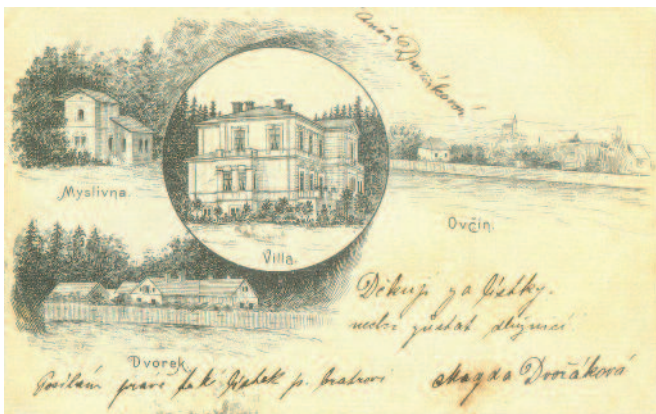 Anna Dvořáková
Myslivna.
Villa.
Ovčín.
Dvorek.
Děkuji za lístky.
nechci zůstat dlužnicí
Posílám právě lístek p. bratrovi
Magda Dvořáková